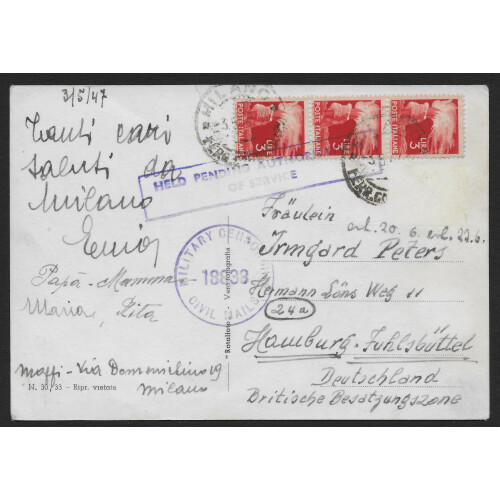 3/5/47
Tanti cari
saluti da
Milano
Enio
Papà - Mamma
Maria, Zita
Maffi - Via Domenichino 19
Milano
N. 30/33 - Ripr. vietata
MILANO
FERR.
POSTE ITALIANE LIRE 3
POSTE ITALIANE LIRE 3
POSTE ITALIANE LIRE 3
HELD PENDING
OF SERVICE
MILITARY CENSORSHIP
CIVIL MAILS
Fräulein
erl. 20. 6. erl. 22.6.
Irmgard Peters
Hermann Löns Weg 11
24a
Hamburg-Fuhlsbüttel
Deutschland
Britische Besatzungszone